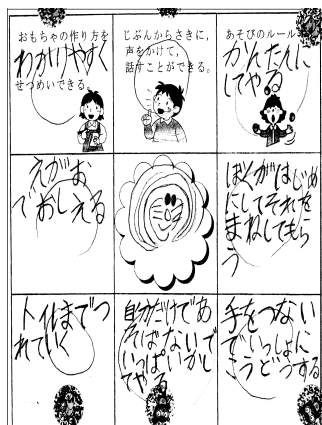 おもちゃの作り方を
わかりやすく
せつめいできる。
じぶんからさきに,
声をかけて,
話すことができる。
あそびのルール
かんたんに
してやる
えがお
でおしえる
ぼくがはじめ
にしてそれを
まねしてもら
う
トイレまでつ
れていく
自分だけであ
そばないで
いっぱいかし
てやる
手をつない
でいっしょに
こうどうする